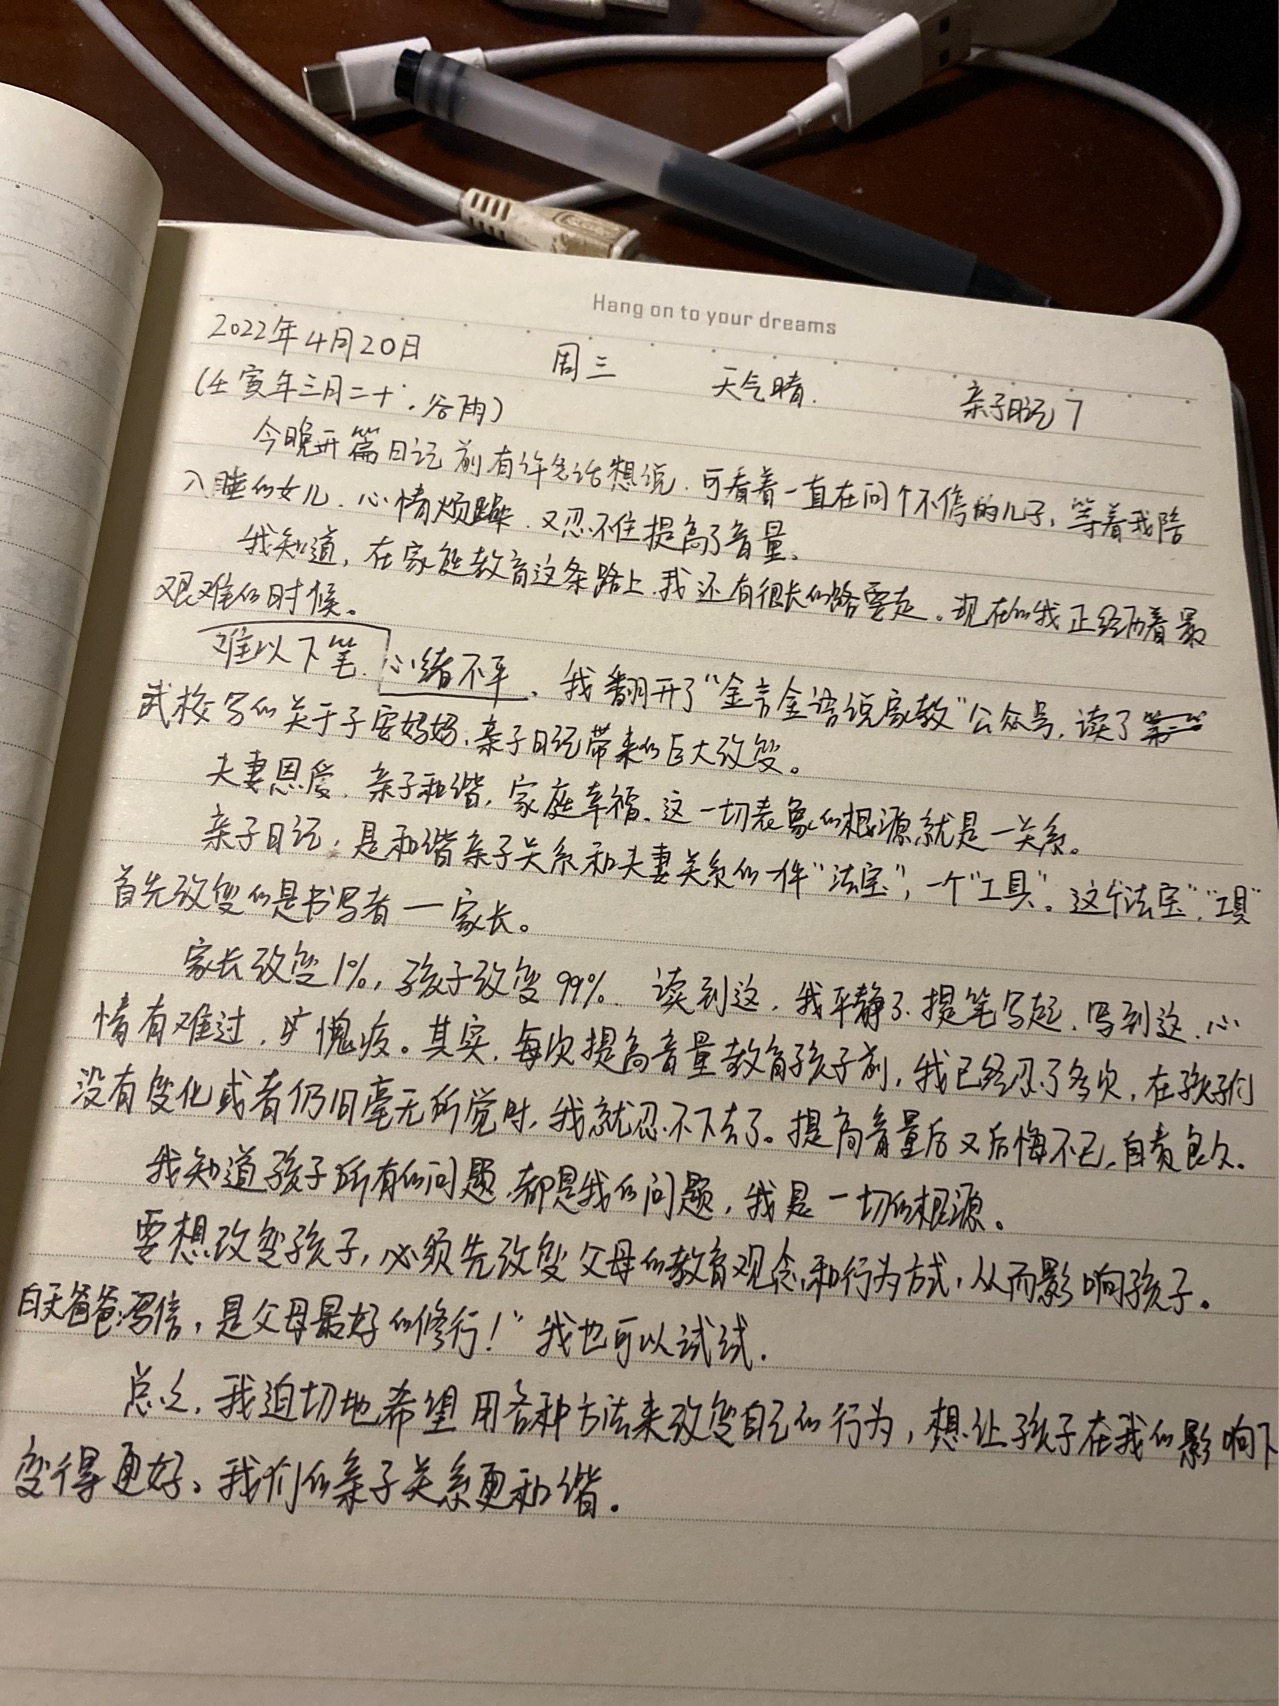 Hang on to your dreams
2022年4月20日 周三 天气晴. 亲子日记7
(壬寅年三月二十.谷雨)
今晚开篇日记前有许多话想说.可看着一直在问个不停的儿子,等着我陪
入睡的女儿.心情烦躁.又忍不住提高了音量。
我知道,在家庭教育这条路上.我还有很长的路要走。现在的我正经历着最
艰难的时候。
难以下笔.心绪不平.我翻开了“金言金语说家教”公众号,读了
武校写的关于子安妈妈.亲子日记带来的巨大改变。
夫妻恩爱.亲子和谐,家庭幸福.这一切表象的根源就是一关系。
亲子日记,是和谐亲子关系和夫妻关系的一件“法宝”,一个“工具”。这个“法宝”,“工具”
首先改变的是书写者一家长。
家长改变1%,孩子改变99%. 读到这,我平静了.提笔写起.写到这.心
情有难过,愧疚。其实,每次提高音量教育孩子前,我已经忍了多次,在孩子们
没有变化或者仍旧毫无所觉时,我就忍不下去了。提高音量后又后悔不已,自责良久。
我知道孩子所有的问题.都是我的问题,我是一切的根源。
要想改变孩子,必须先改变父母的教育观念和行为方式,从而影响孩子。
白天爸爸:写信,是父母最好的修行!”我也可以试试.
总之.我迫切地希望用各种方法来改变自己的行为,想让孩子在我的影响下
变得更好、我们的亲子关系更和谐。